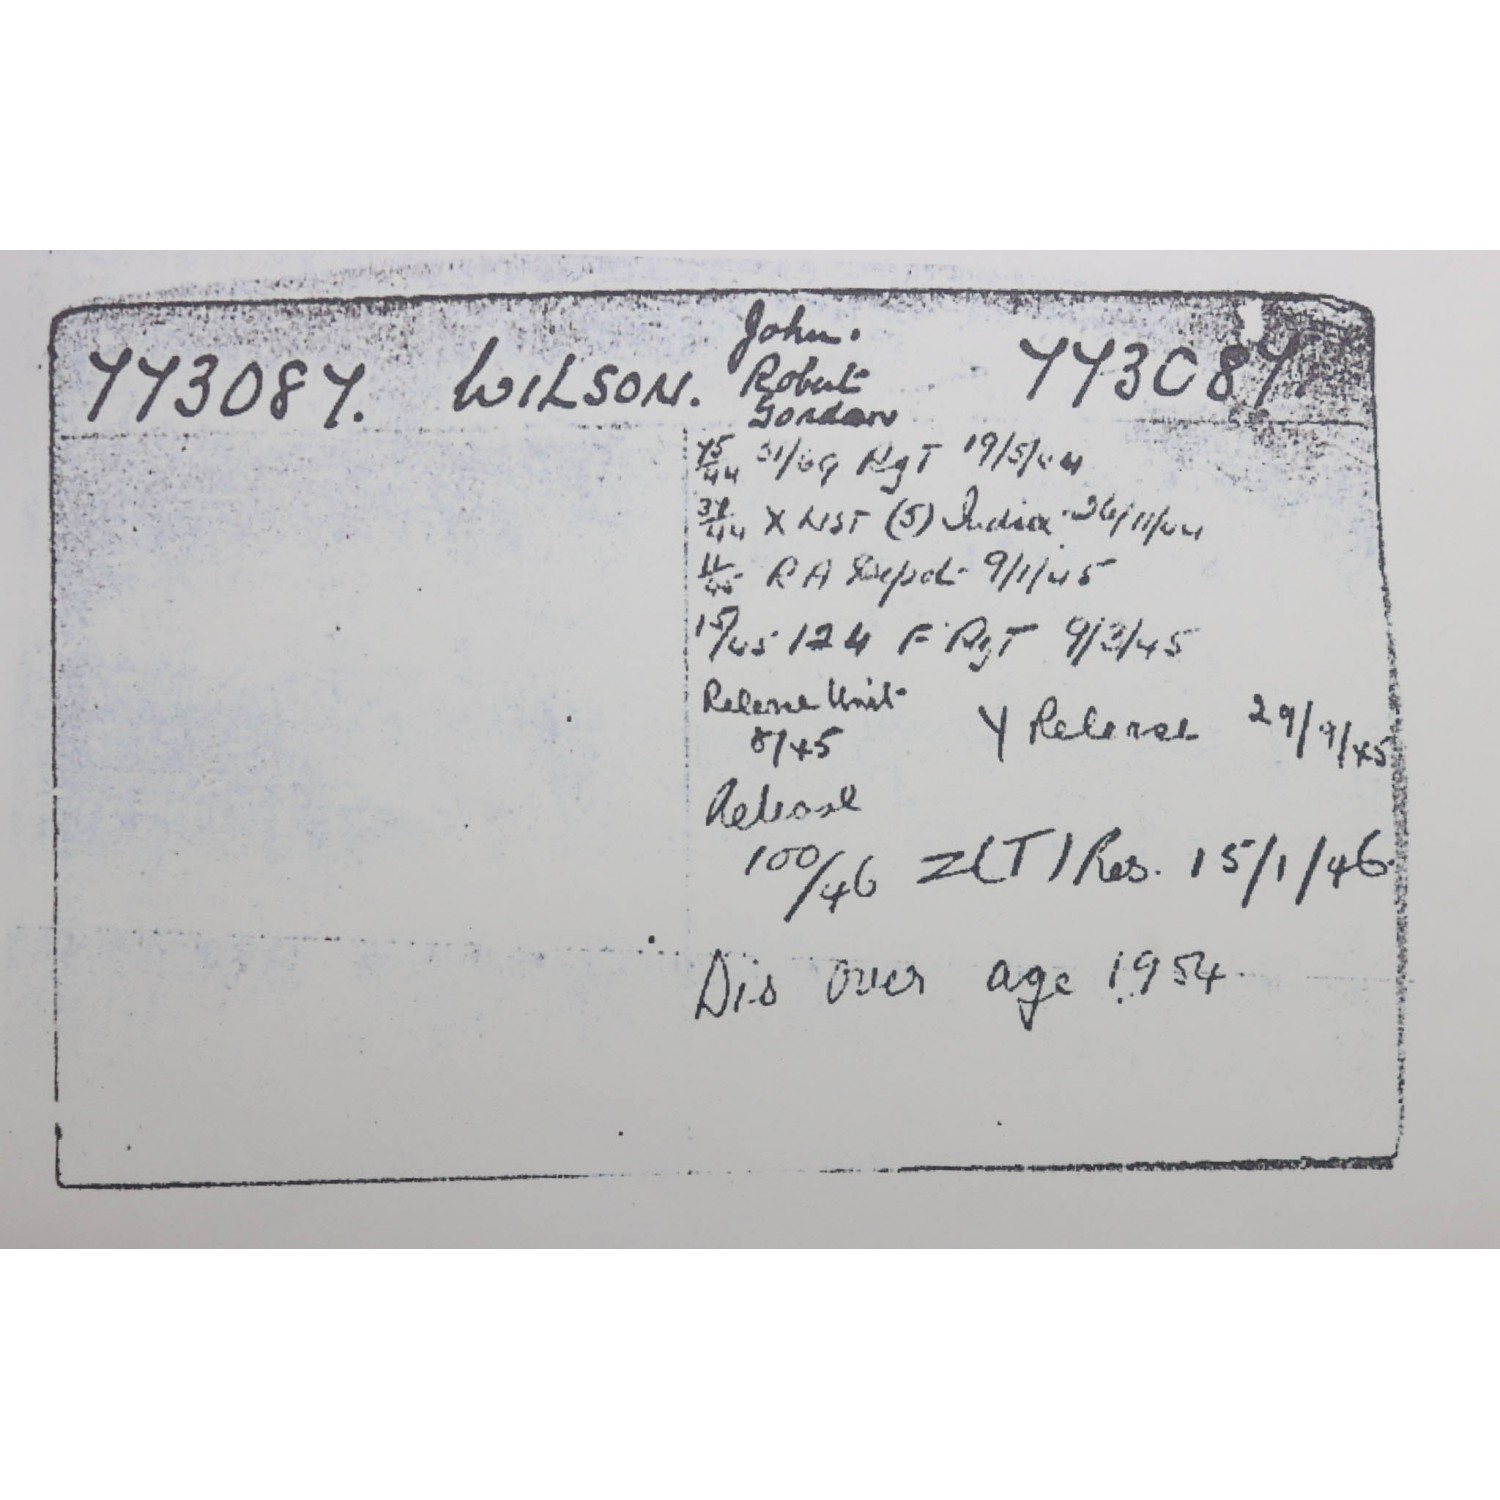 773087. WILSON. John. Robert Gordon 773087.
75/44 51/69 RgT 19/5/44
37/44 X LIST (5) India 26/11/44
11/45 R A Depot 9/1/45
15/45 124 F RgT 9/3/45
Release Unit 8/45 Y Release 29/9/45
Release 100/46 Z(T) Res. 15/1/46
Dis over age 1954